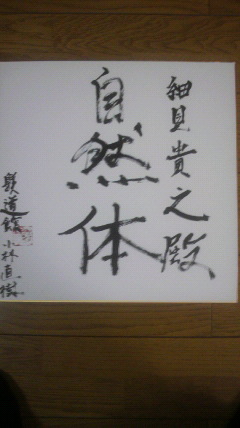 細見貴之殿
自然体
躾道館 小林直樹